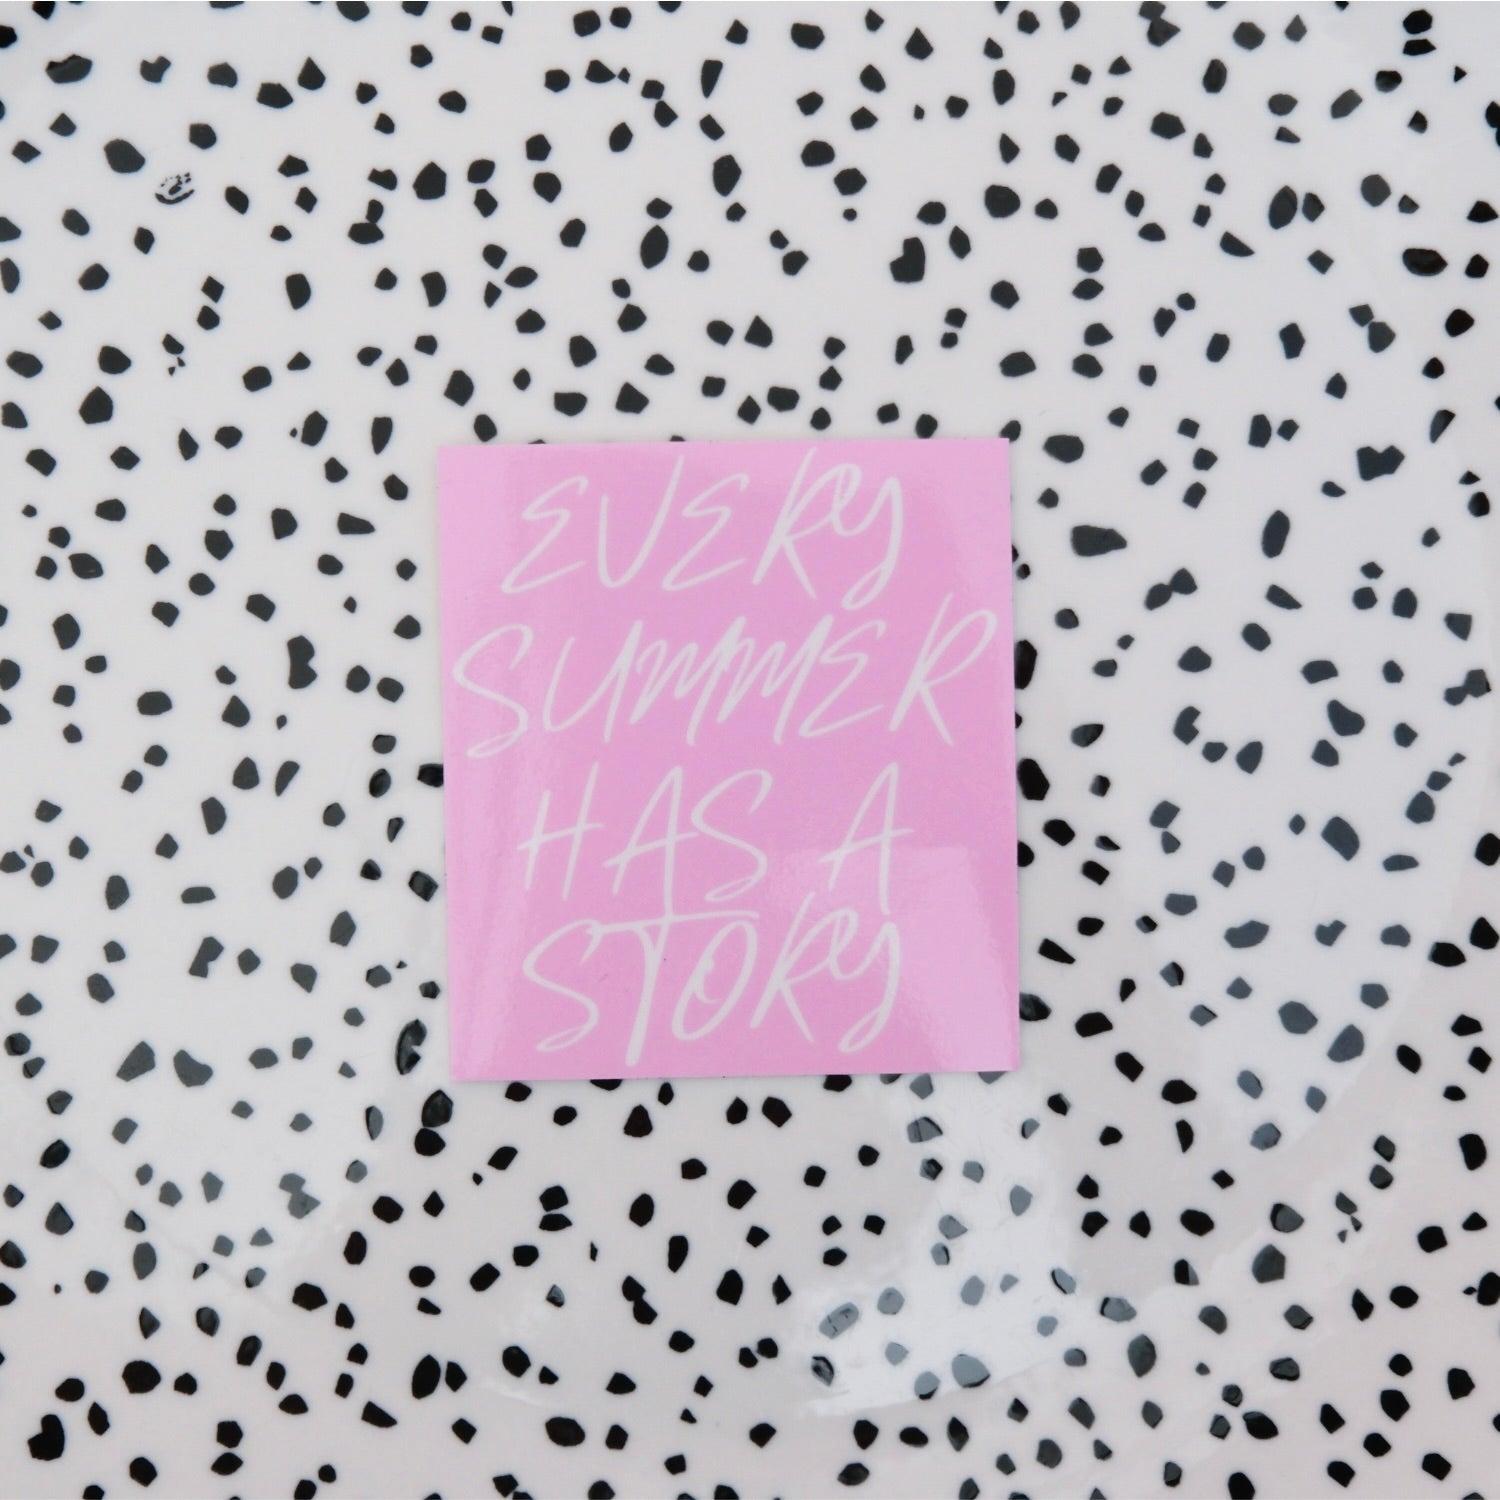 EVERY
SUMMER
HAS A
STORY